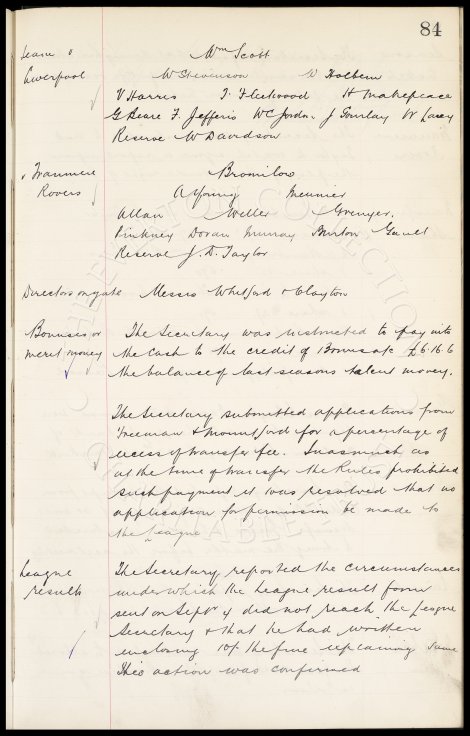 84
Team v
Liverpool
Wm Scott
W Stevenson W Holbem
V Harris T. Fleetwood H Makepeace
G Beare F. Jefferis W C Jordan J Gourlay W Lacey
Reserve W Davidson
v Tranmere
Rovers
Bromilow
A Young Meunier
Allan Weller Grenyer.
Pinkney Doran Murray Burton Gault
Reserve J. D. Taylor
Directors on gate Messrs Whitford & Clayton
Bonuses or
merit money
The Secretary was instructed to pay into
the Cash to the credit of Bonus a/c £6.16.6
the balance of last seasons talent money.
The Secretary submitted applications from
Freeman & Mountford for a percentage of
excess of transfer fee. Inasmuch as
at the time of transfer the Rules prohibited
such payment it was resolved that no
application for permission be made to
the League
League
results
The Secretary reported the circumstances
under which the League result form
sent on Sept 4 did not reach the League
Secretary & that he had written
enclosing 10/- the fine same
This action was confirmed